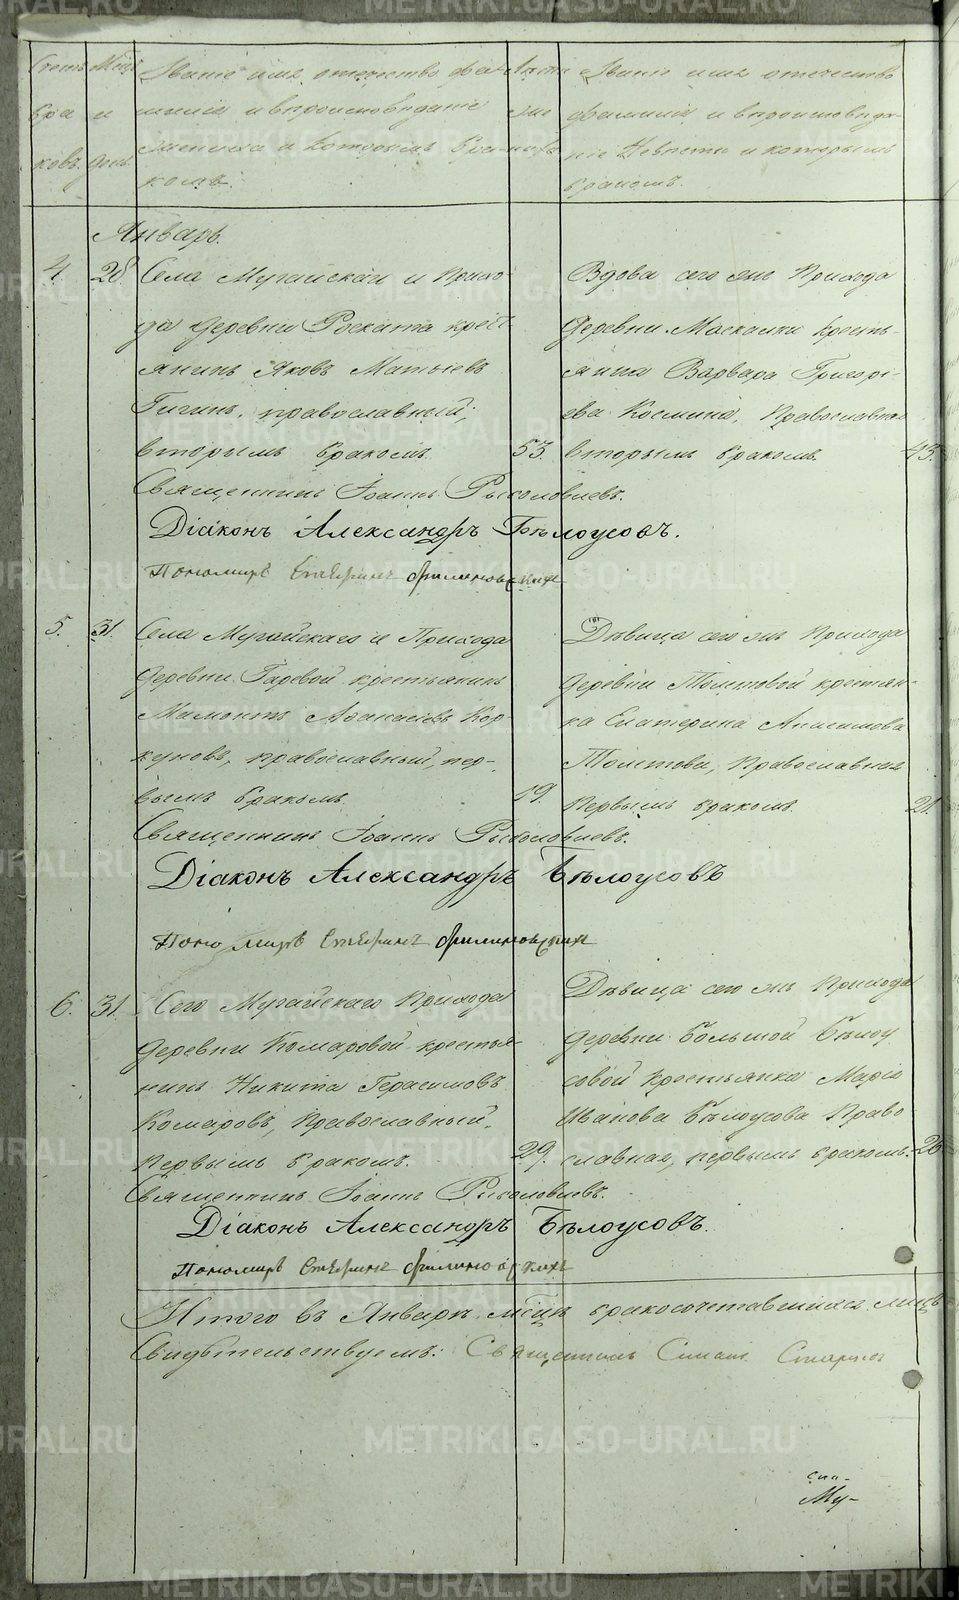 Счетъ Мѣц. Званіе имя отечество фа- Лѣта Званіе имя отечество
бра и милія и вѣроисповѣданіе фамилія и вѣроисповѣда-
ковъ. день. жениха и которымъ бра- ніе Невѣсты и которымъ
комъ. бракомъ.
Январь.
4. 28. Села Мугайскаго и Прихо-
да деревни Роскита крест
янинъ Яковъ Матѳіевъ
православный,
вторымъ бракомъ. 53.
Вдова сего же Прихода
деревни Москалки крестья-
янка Варвара Григорі-
ева Космина, Православная
вторымъ бракомъ. 43.
Священникъ Іоаннъ Рыболовлевъ.
Діаконъ Александръ Бѣлоусовъ.
Пономарь Стефанъ Филимоновскихъ
5. 31. Села Мугайскаго и Прихода
деревни Гаревой крестьянинъ
Мамонтъ Аѳанасіевъ Кор-
куновъ, православный, пер-
вымъ бракомъ. 19.
Дѣвица сего же Прихода
деревни Толстовой крестьян-
ка Екатерина Анисимова
Толстова, Православная
первымъ бракомъ. 21.
Священникъ Іоаннъ Рыболовлевъ.
Діаконъ Александръ Бѣлоусовъ
Пономарь Стефанъ Филимоновскихъ
6. 31. Сего Мугайскаго Прихода
деревни Комаровой крестья-
нинъ Никита Герасимовъ
Комаровъ, Православный,
первымъ бракомъ. 29.
Дѣвица сего же Прихода
деревни Большой Бѣлоу
совой крестьянка Марія
Иванова Бѣлоусова Право
славная, первымъ бракомъ. 26.
Священникъ Іоаннъ Рыболовлевъ.
Діаконъ Александръ Бѣлоусовъ.
Пономарь Стефанъ Филимоновскихъ
Итого въ Январѣ мѣцѣ бракосочетавшихся лицъ
Свидѣтельствуемъ: Священникъ Симеонъ
Му-
METRIKI.GASO-URAL.RU